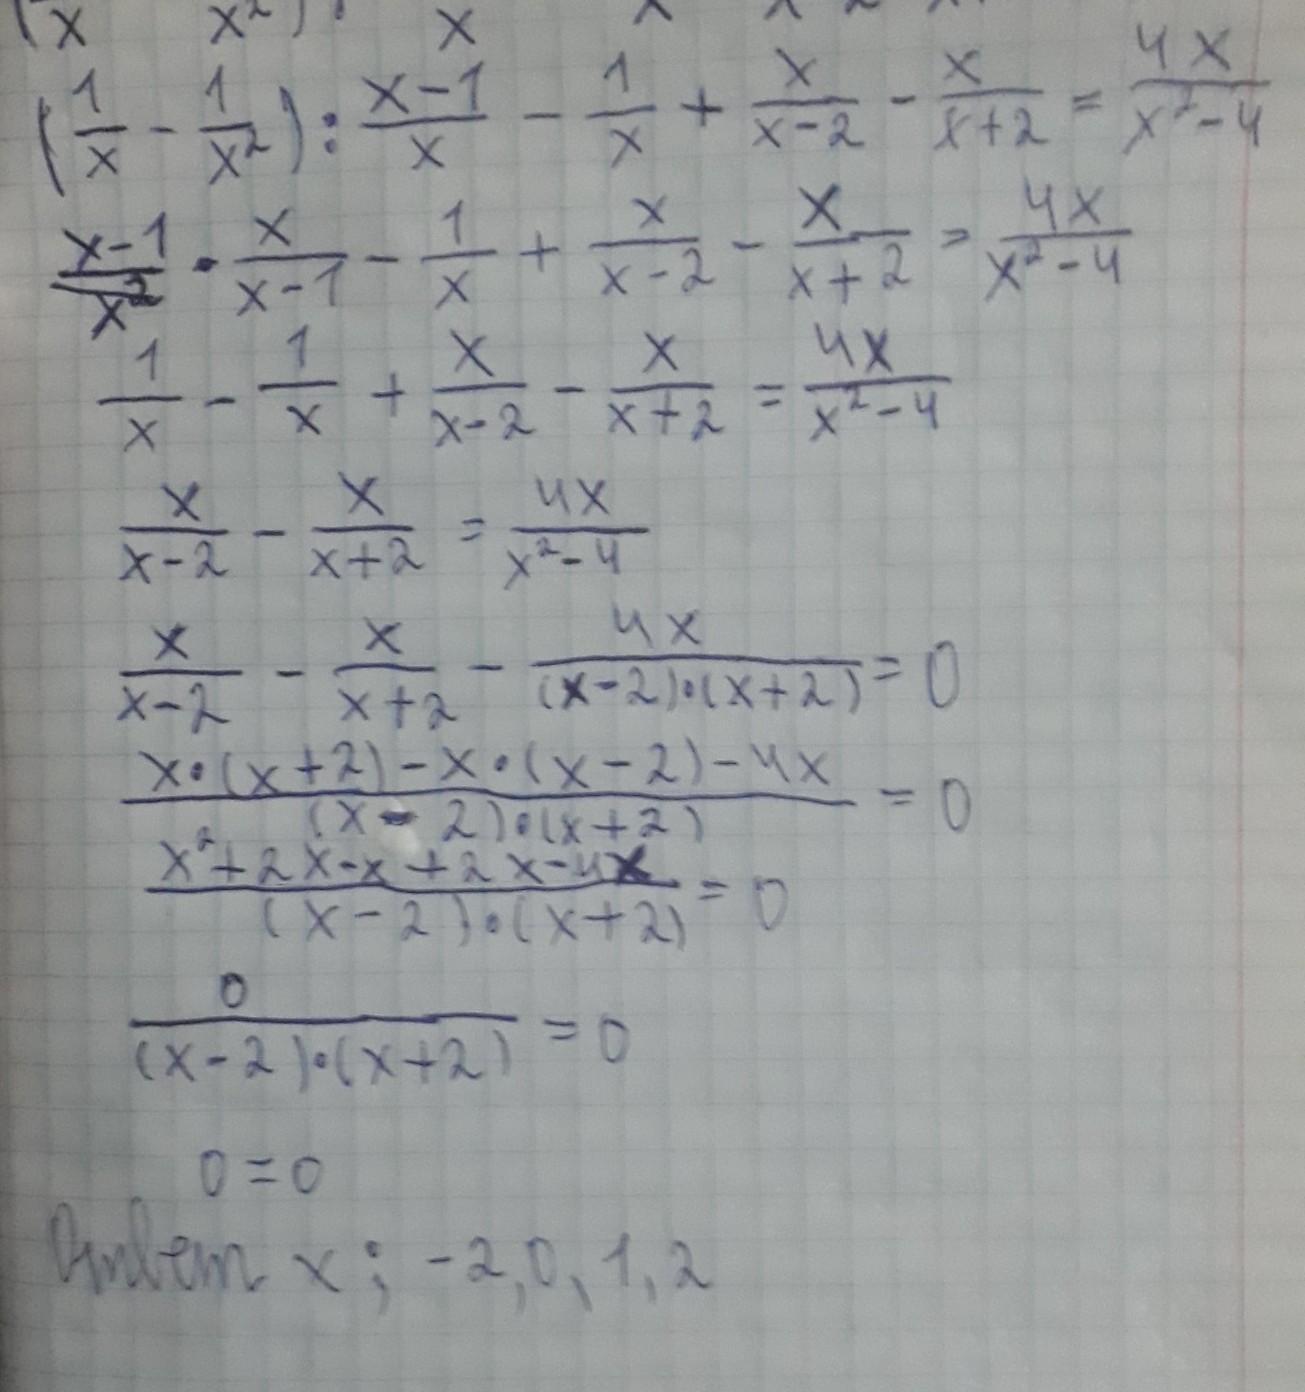 (1/x - 1/x²) : (x-1)/x - 1/x + x/(x-2) - x/(x+2) = 4x/(x²-4)
(x-1)/x² • x/(x-1) - 1/x + x/(x-2) - x/(x+2) = 4x/(x²-4)
1/x - 1/x + x/(x-2) - x/(x+2) = 4x/(x²-4)
x/(x-2) - x/(x+2) = 4x/(x²-4)
x/(x-2) - x/(x+2) - 4x/((x-2)•(x+2)) = 0
(x•(x+2)-x•(x-2)-4x)/((x-2)•(x+2)) = 0
(x²+2x-x+2x-4x)/((x-2)•(x+2)) = 0
0/((x-2)•(x+2)) = 0
0=0
Ответ x; -2,0,1,2